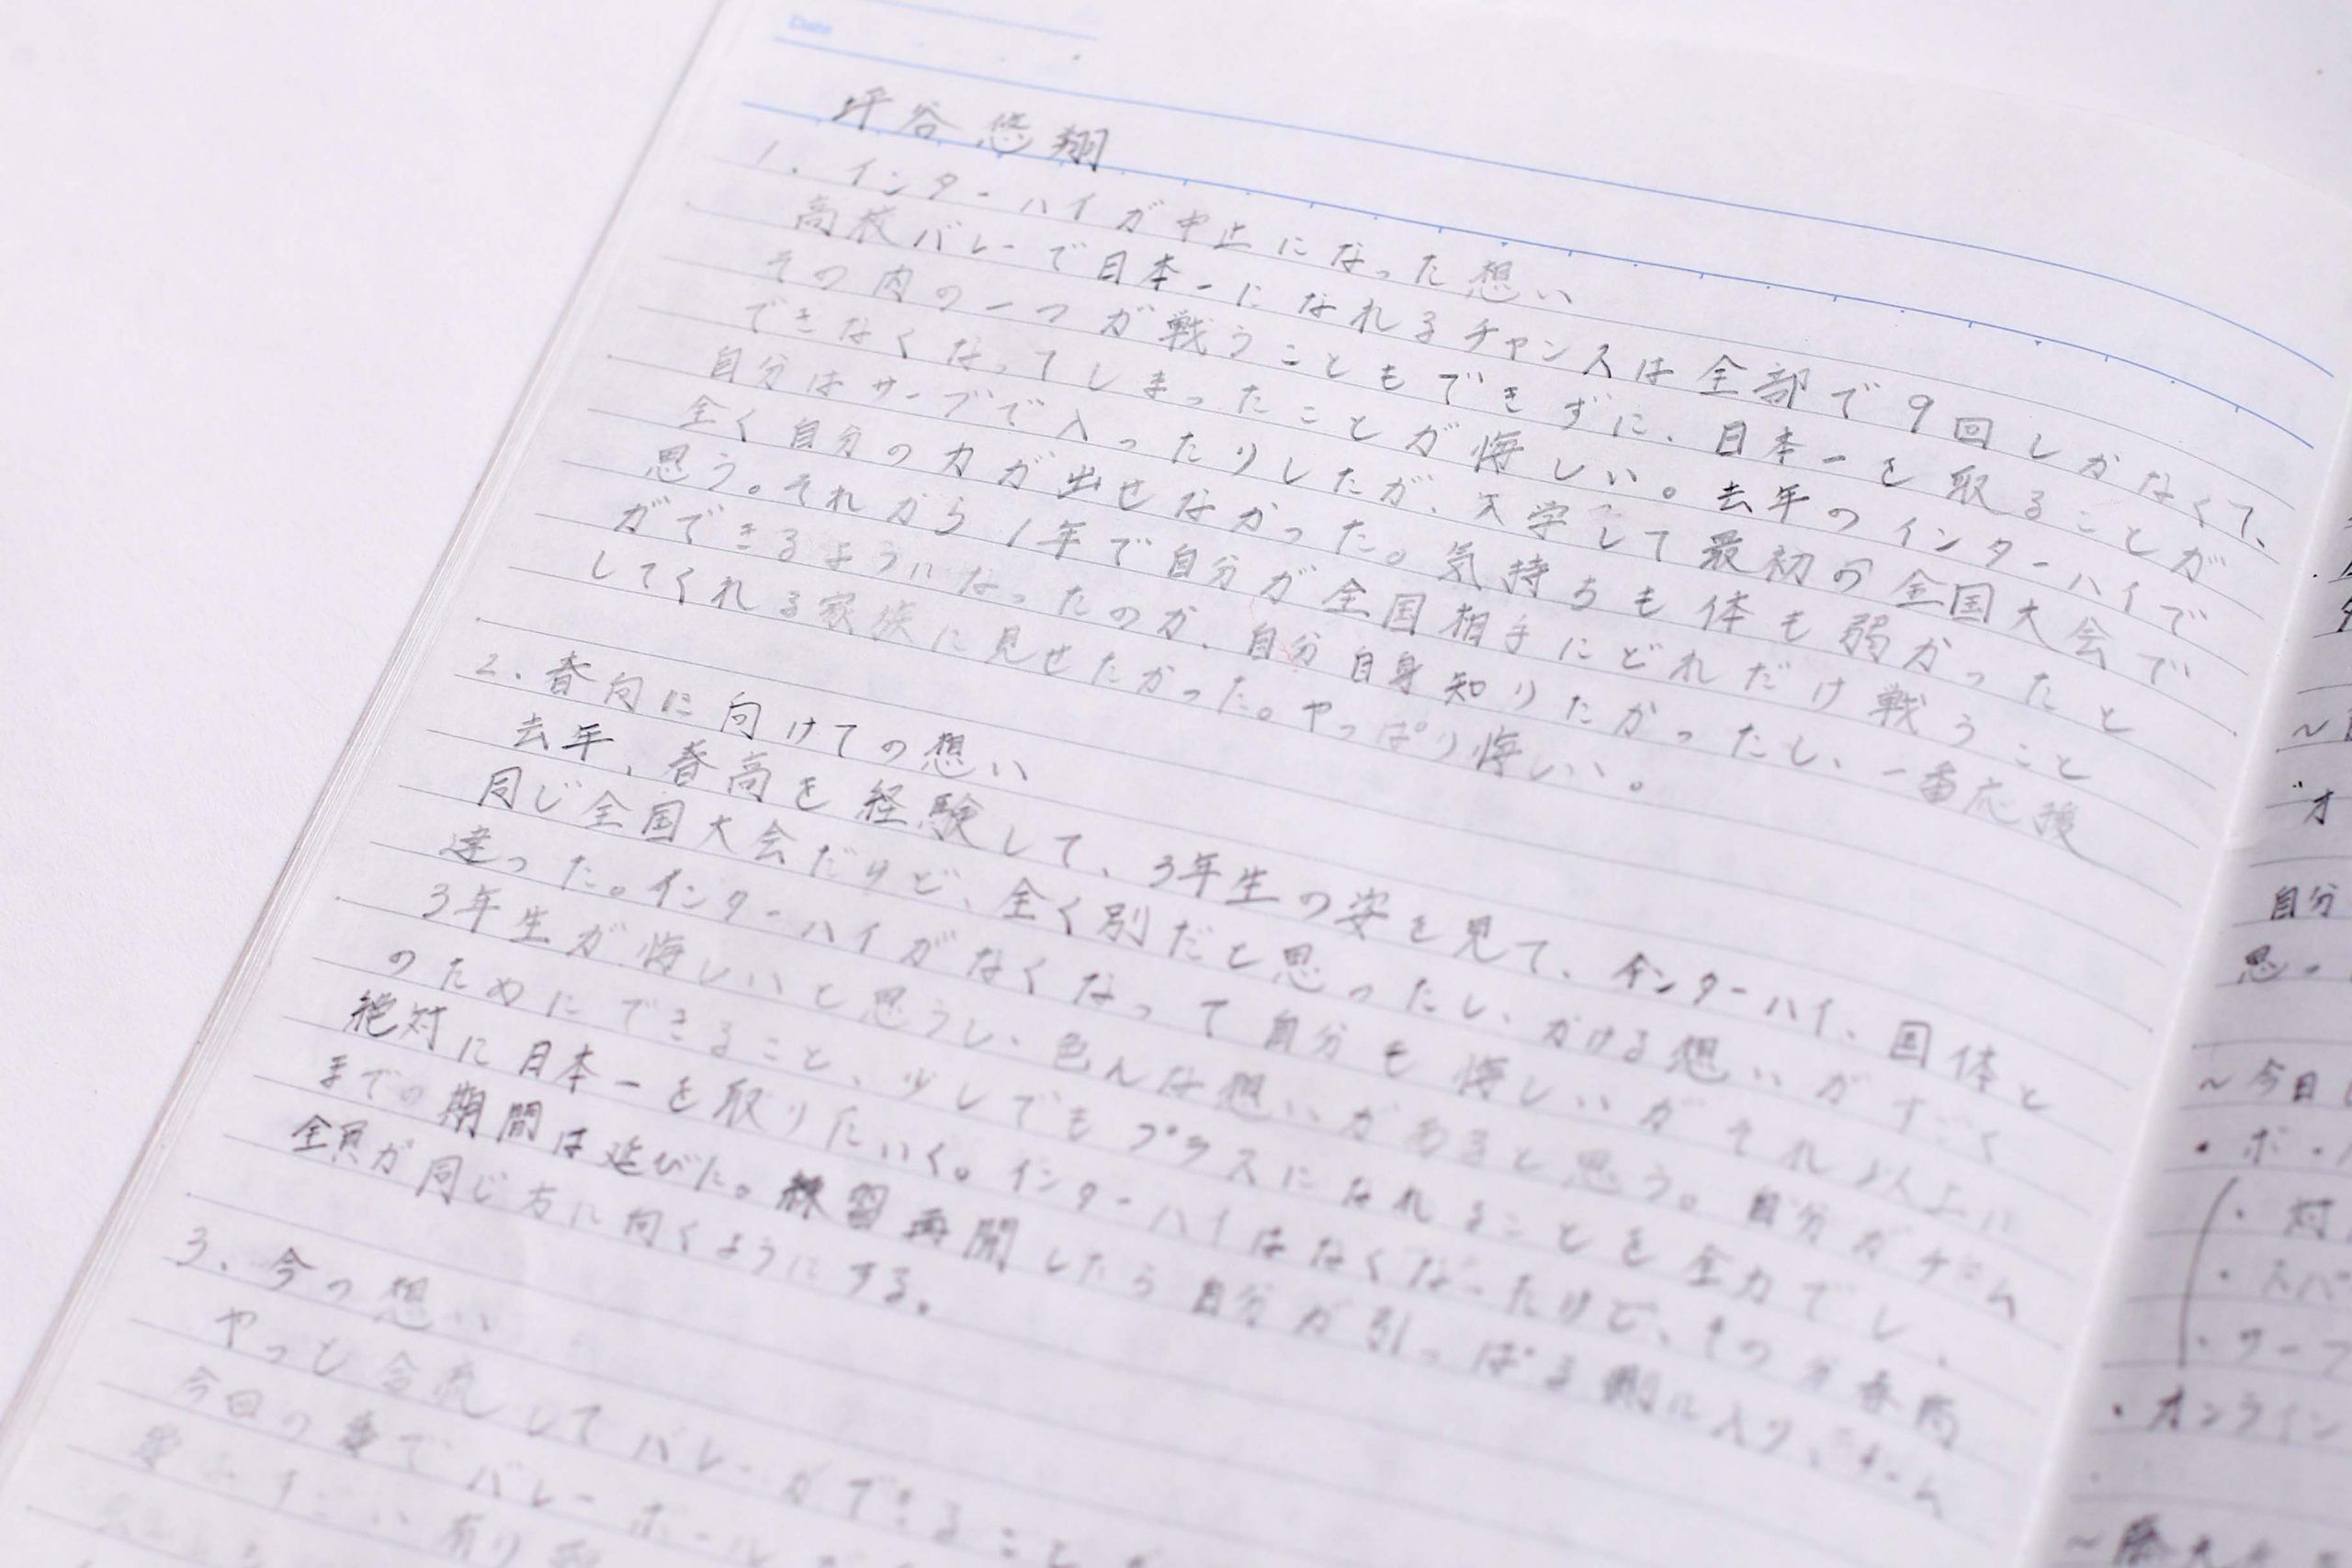 Date
坪谷悠翔
1. インターハイが中止になった想い
高校バレーで日本一になれるチャンスは全部で9回しかなくて、
その内の一つが戦うこともできずに、日本一を取ることが
できなくなってしまったことが悔しい。去年のインターハイで
自分はサーブで入ったりしたが、入学して最初の全国大会で
全く自分の力が出せなかった。気持ちも体も弱かったと
思う。それから1年で自分が全国相手にどれだけ戦うこと
ができるようになったのか、自分自身知りたかったし、一番応援
してくれる家族に見せたかった。やっぱり悔しい。
2. 春向に向けての想い
去年、春高を経験して、3年生の姿を見て、インターハイ、国体と
同じ全国大会だけど、全く別だと思ったし、かける想いがすごく
違った。インターハイがなくなって自分も悔しいがそれ以上に
3年生が悔しいと思うし、色んな想いがあると思う。自分がチーム
のためにできること、少しでもプラスになれることを全力でし、
絶対に日本一を取りたいく。インターハイはなくなったけど、その分春高
までの期間は延びた。練習再開したら自分が引っぱる側に入り、チーム
全員が同じ方に向くようにする。
3、今の想い
やっと合流してバレーができること
今回の事でバレーボール
すごい有り
自分
思っ
~今日
・ボ
・対
・スパ
・サーブ
・オンライン